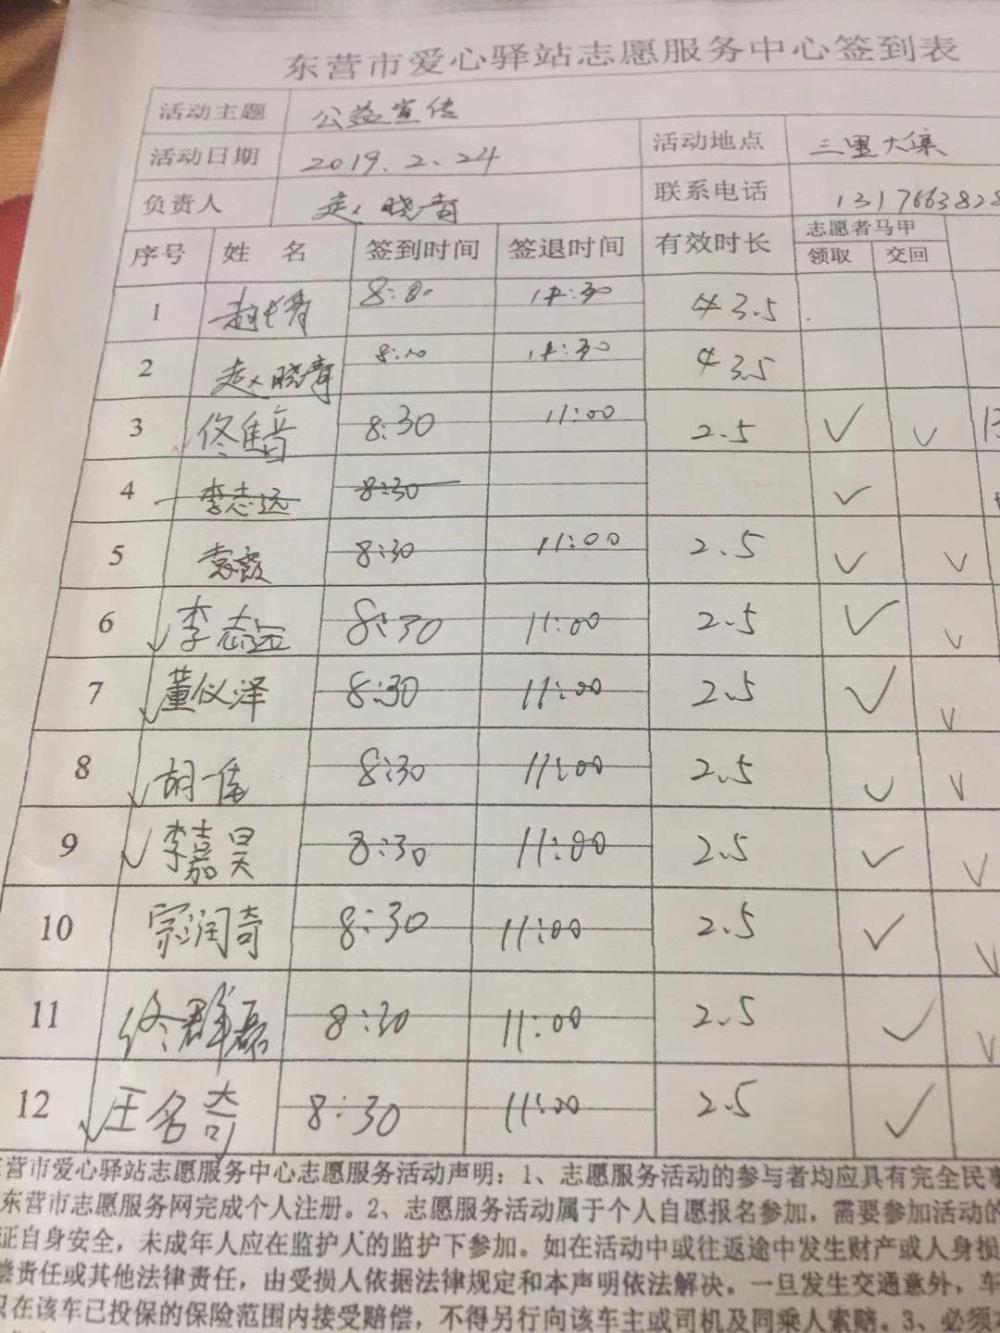 东营市爱心驿站志愿服务中心签到表
活动主题 公益宣传
活动日期 2019.2.24 活动地点 三里大集
负责人 赵晓青 联系电话 1317663828
序号 姓 名 签到时间 签退时间 有效时长 志愿者马甲
领取 交回
1 8:00 3.5
2 赵晓青 8:00 3.5
3 佟隹音 8:30 11:00 2.5 ✓ ✓
4 李志远 8:30 ✓
5 袁霞 8:30 11:00 2.5 ✓ ✓
6 ✓李志远 8:30 11:00 2.5 ✓ ✓
7 ✓董仪泽 8:30 11:00 2.5 ✓ ✓
8 ✓胡一伟 8:30 11:00 2.5 ✓ ✓
9 ✓李嘉昊 8:30 11:00 2.5 ✓ ✓
10 宗润奇 8:30 11:00 2.5 ✓ ✓
11 佟群磊 8:30 11:00 2.5 ✓ ✓
12 ✓王名奇 8:30 11:00 2.5 ✓
营市爱心驿站志愿服务中心志愿服务活动声明：1、志愿服务活动的参与者均应具有完全民事
东营市志愿服务网完成个人注册。2、志愿服务活动属于个人自愿报名参加，需要参加活动的
证自身安全，未成年人应在监护人的监护下参加。如在活动中或往返途中发生财产或人身损
偿责任或其他法律责任，由受损人依据法律规定和本声明依法解决。一旦发生交通意外，车
只在该车已投保的保险范围内接受赔偿，不得另行向该车主或司机及同乘人索赔。3、必须